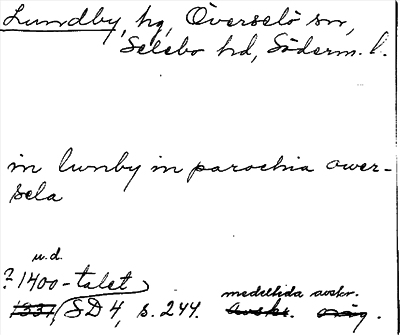 Lundby, hg, Överselö sn,
Selebo hd, Söderm. l.
in lunby in parochia ower-
sela
u.d.
? 1400-talet medeltida avskr.
1331, SD 4, s. 244. Avskr. orig.